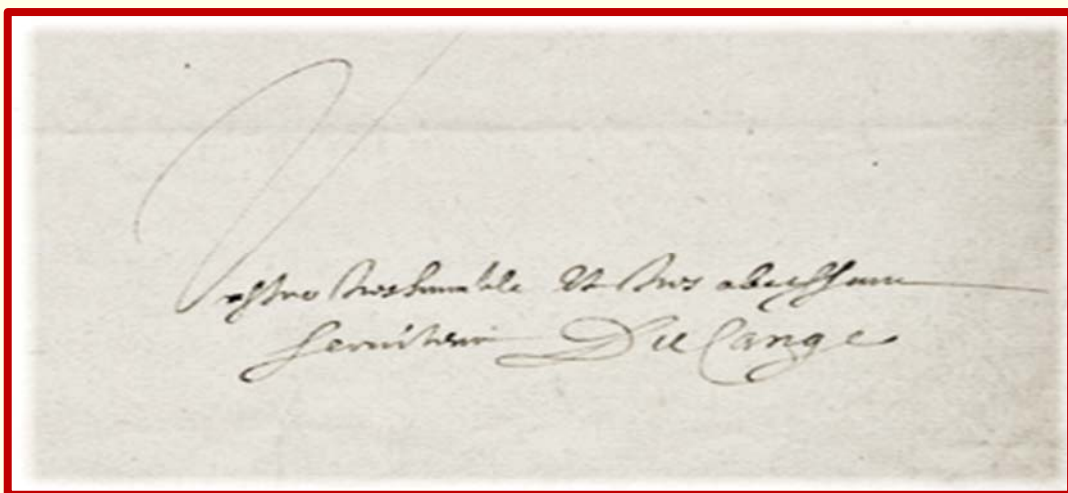 Vostre tres humble Et tres obeissant
serviteur Du Cange